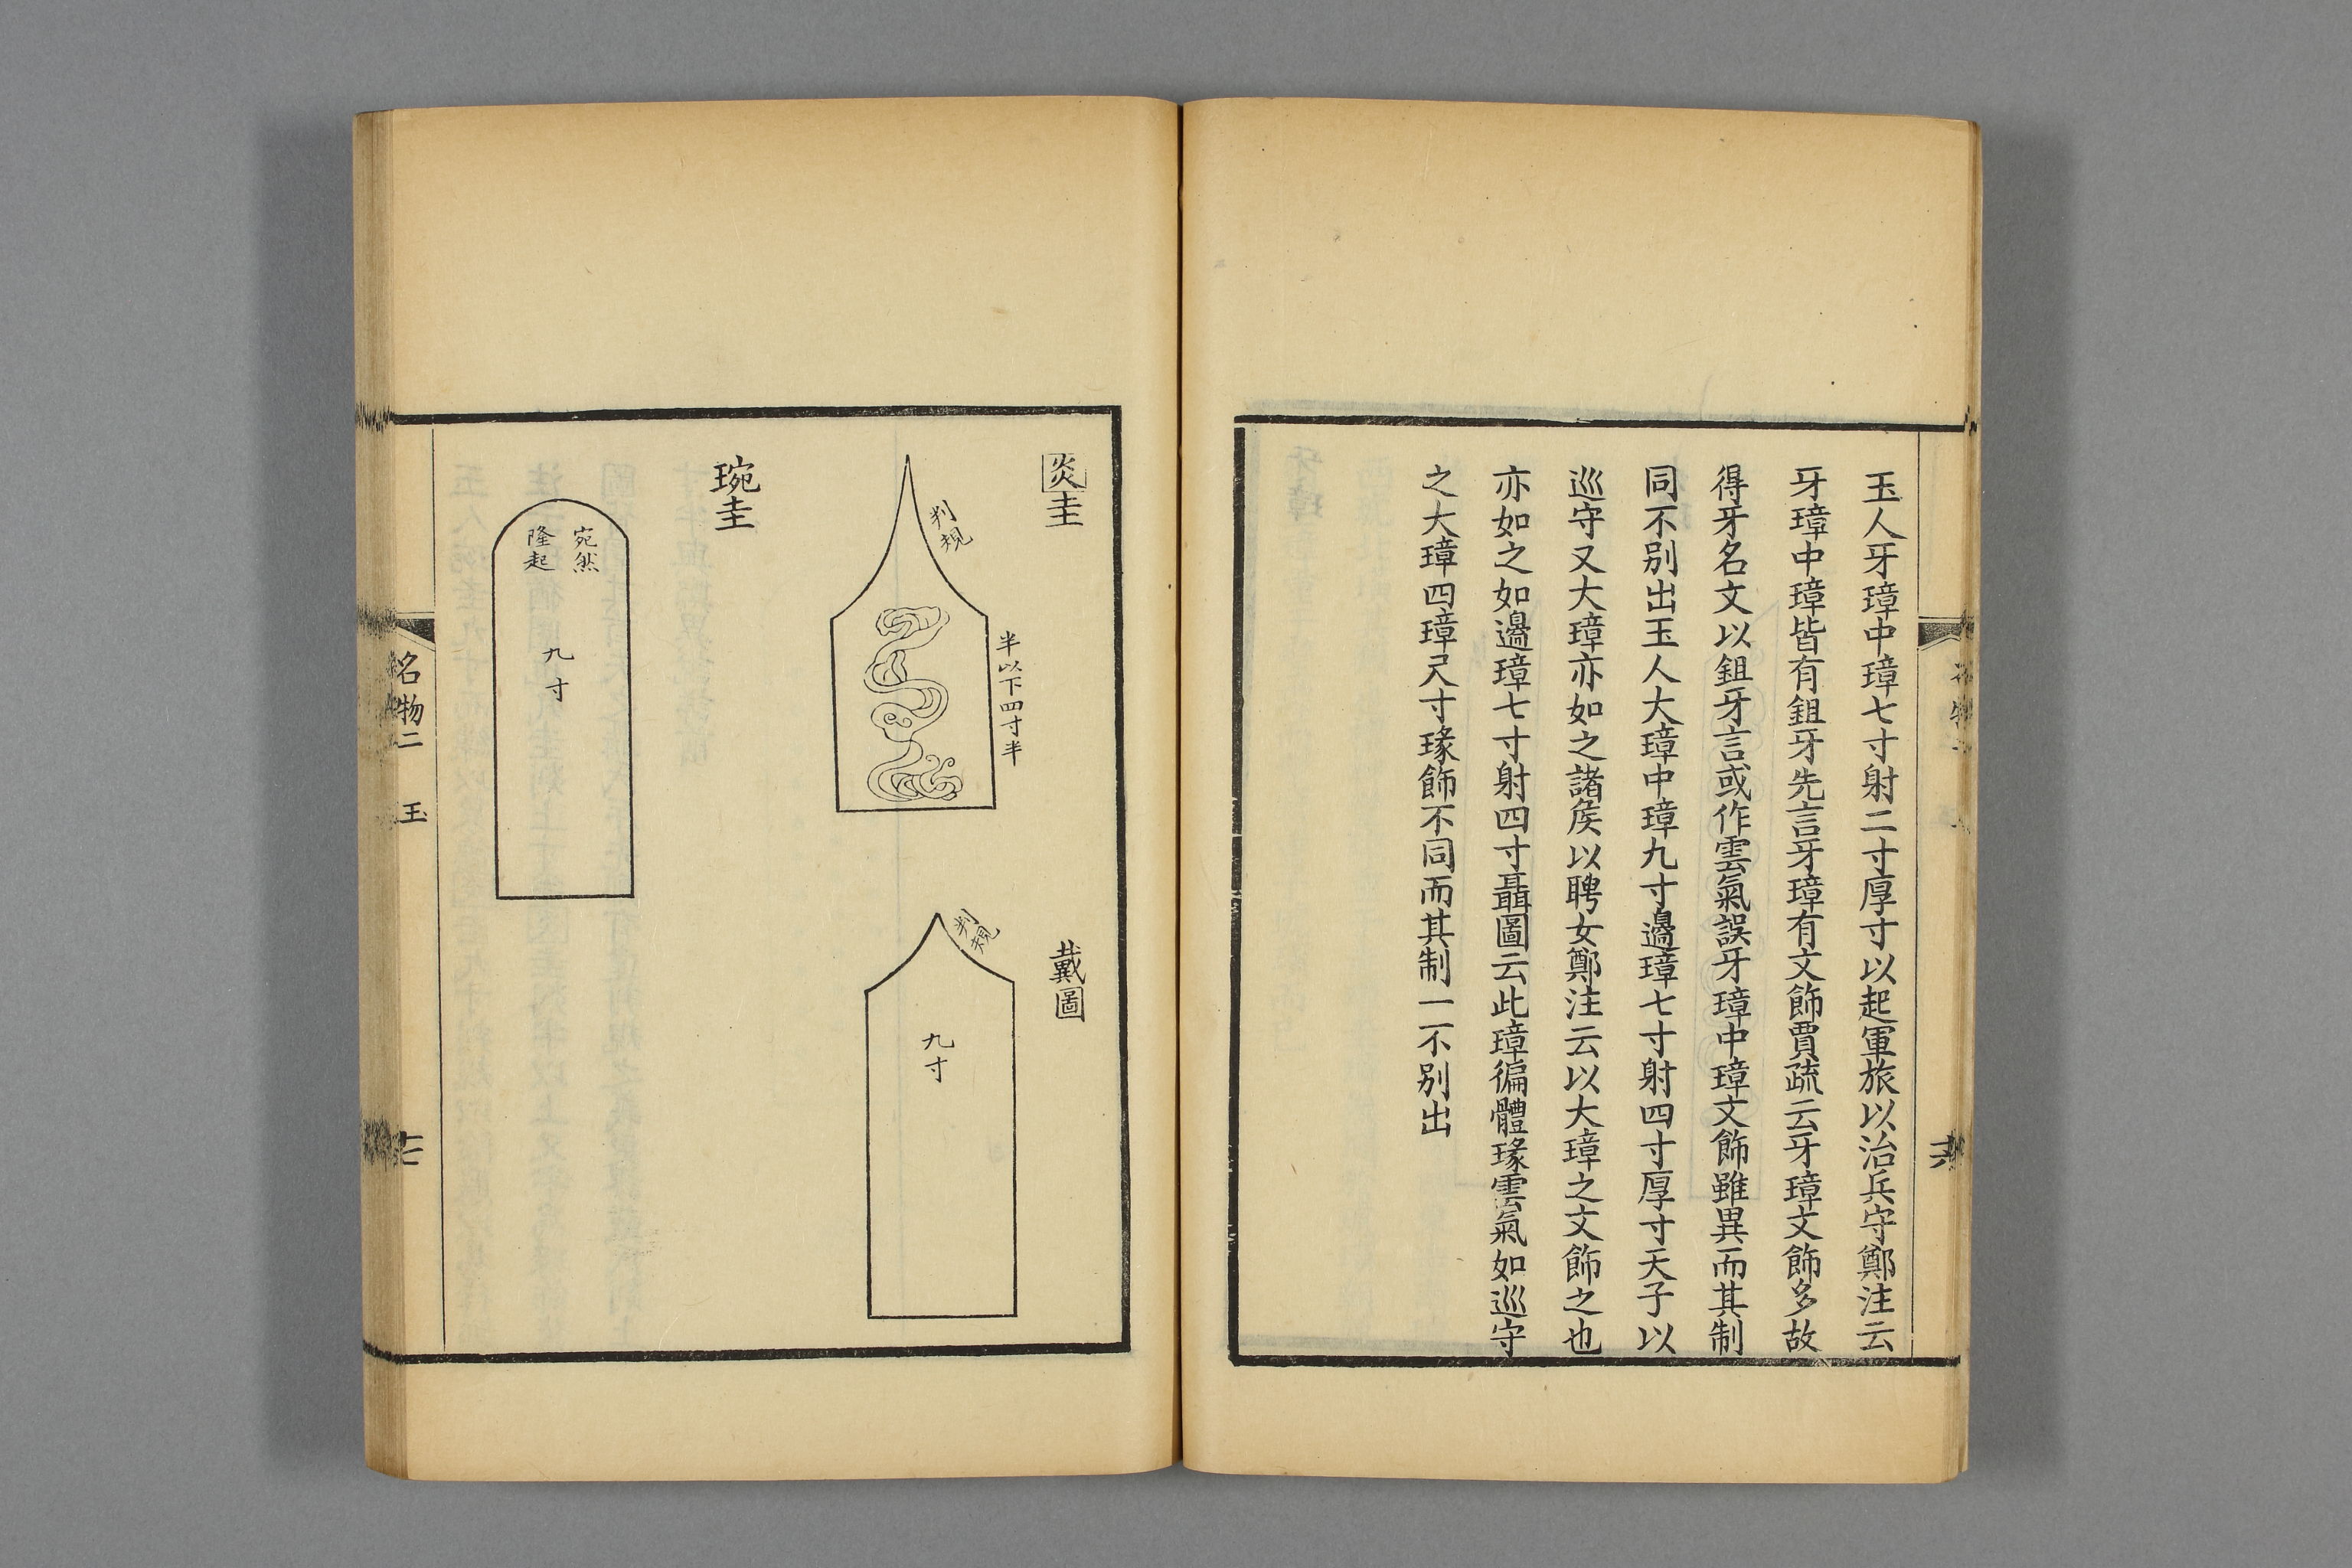 玉人牙璋中璋七寸射二寸厚寸以起軍旅以治兵守鄭注云
牙璋中璋皆有鉏牙先言牙璋有文飾賈疏云牙璋文飾多故
得牙名文以鉏牙言或作雲氣誤牙璋中璋文飾雖異而其制
同不别出玉人大璋中璋九寸邊璋七寸射四寸厚寸天子以
巡守又大璋亦如之諸矦以聘女鄭注云以大璋之文飾之也
亦如之如邊璋七寸射四寸聶圖云此璋徧體瑑雲氣如巡守
之大璋四璋尺寸瑑飾不同而其制一不别出
琰圭
判規
半以下四寸半
戴圖
判規
九寸
琬圭
宛然
隆起
九寸
名物二
玉